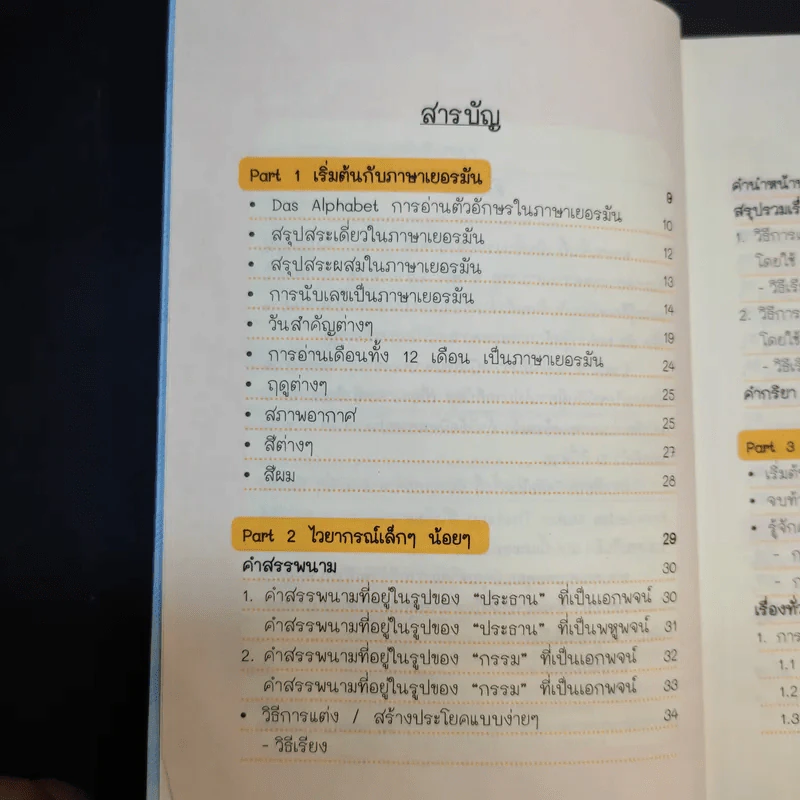 สารบัญ
Part 1 เริ่มต้นกับภาษาเยอรมัน 9
• Das Alphabet การอ่านตัวอักษรในภาษาเยอรมัน 10
• สรุปสระเดี่ยวในภาษาเยอรมัน 12
• สรุปสระผสมในภาษาเยอรมัน 13
• การนับเลขเป็นภาษาเยอรมัน 14
• วันสำคัญต่างๆ 19
• การอ่านเดือนทั้ง 12 เดือน เป็นภาษาเยอรมัน 24
• ฤดูต่างๆ 25
• สภาพอากาศ 25
• สีต่างๆ 27
• สีผม 28
Part 2 ไวยากรณ์เล็กๆ น้อยๆ 29
คำสรรพนาม 30
1. คำสรรพนามที่อยู่ในรูปของ “ประธาน” ที่เป็นเอกพจน์ 30
คำสรรพนามที่อยู่ในรูปของ “ประธาน” ที่เป็นพหูพจน์ 31
2. คำสรรพนามที่อยู่ในรูปของ “กรรม” ที่เป็นเอกพจน์ 32
คำสรรพนามที่อยู่ในรูปของ “กรรม” ที่เป็นเอกพจน์ 33
• วิธีการแต่ง / สร้างประโยคแบบง่ายๆ 34
- วิธีเรียง
คำนำหน้า
สรุปรวมเรื่
1. วิธีการ
โดยใช้
- วิธีเรี
2. วิธีการ
โดยใช้
- วิธีเรี
คำกริยา
Part 3
• เริ่มต้
• จบท้
• รู้จัก
- ก
- ก
เรื่องทั่
1. การ
1.1
1.2
1.3